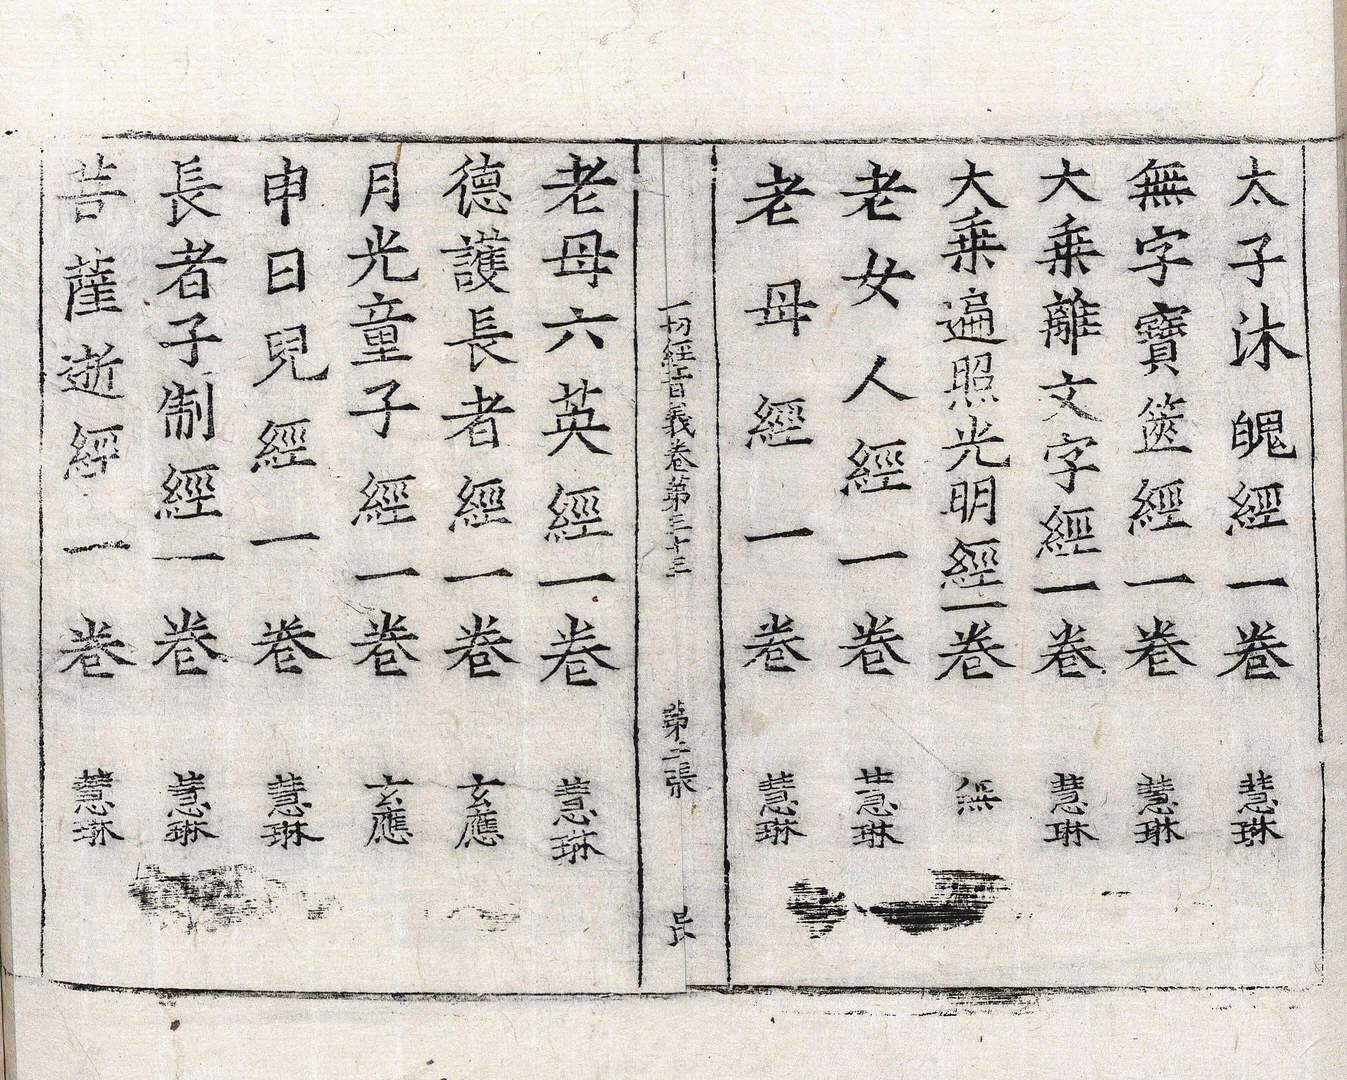 太子沐魄經一卷 慧琳
無字寶篋經一卷 慧琳
大乘離文字經一卷 慧琳
大乘遍照光明經一卷 無
老女人經一卷 慧琳
老母經一卷 慧琳
一切經音義卷第三十三 第二張
老母六英經一卷 慧琳
德護長者經一卷 玄應
月光童子經一卷 玄應
申日兒經一卷 慧琳
長者子制經一卷 慧琳
菩薩逝經一卷 慧琳